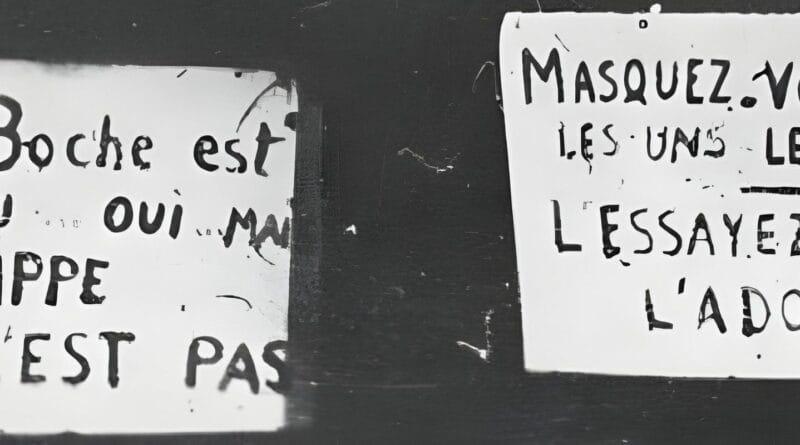 Boche est
OUI MAI
IPPE
'EST PAS
MASQUEZ-VO
LES UNS LE
L'ESSAYEZ
L'ADO